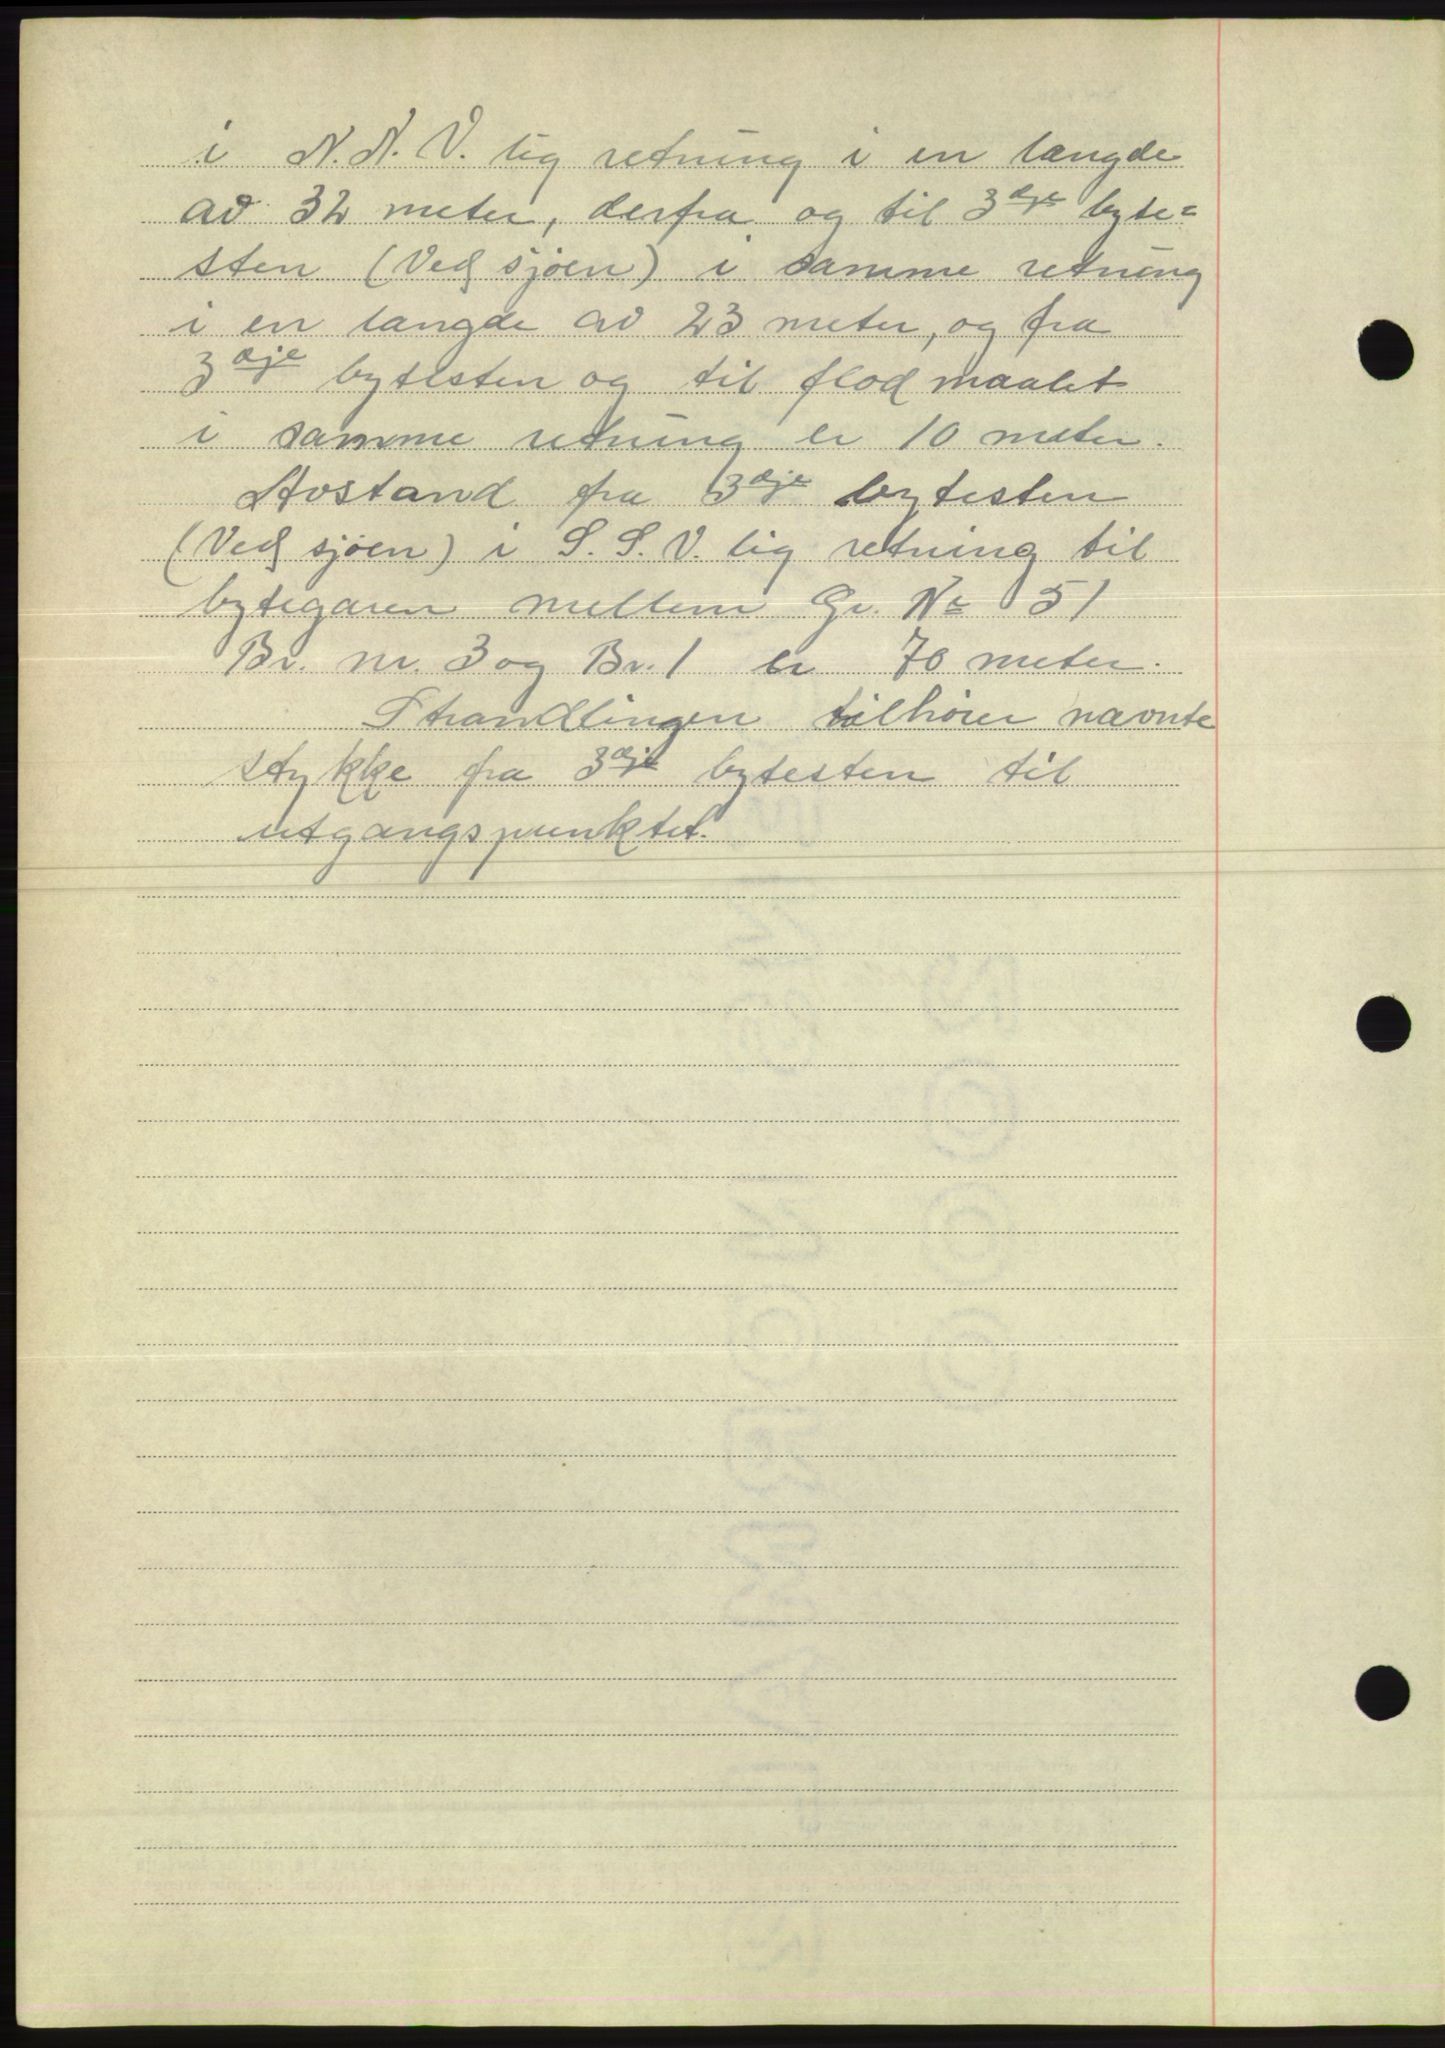 i N. N. V. lig retning i en længde
av 32 meter, derfra og til 3dje byte=
sten (Ved sjøen) i samme retning
i en længde av 23 meter, og fra
3dje bytesten og til flodmaalet
i samme retning er 10 meter.
Avstand fra 3dje bytesten
(Ved sjøen) i S. S. V. lig retning til
bytegaren mellem Gr. Nr 51
Br. nr. 3 og Br. 1 er 70 meter.
Strandlingen tilhører nævnte
stykke fra 3dje bytesten til
utgangspunktet.